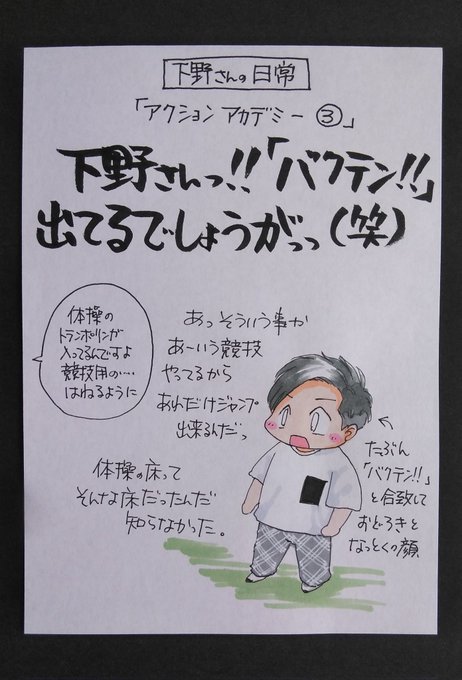 下野さんの日常
「アクション アカデミー ③」
下野さんっ!!「バクテン!!」
出てるでしょうがっっ(笑)
体操の
トランポリンが
入ってるんですよ
競技用の‥‥
はねるように
あっ そういう事か
あーいう競技
やってるから
あれだけジャンプ
出来るんだっ
体操の床って
そんな床だったんだ
知らなかった。
たぶん
「バクテン!!」
と合致して
おどろきと
なっとくの顔